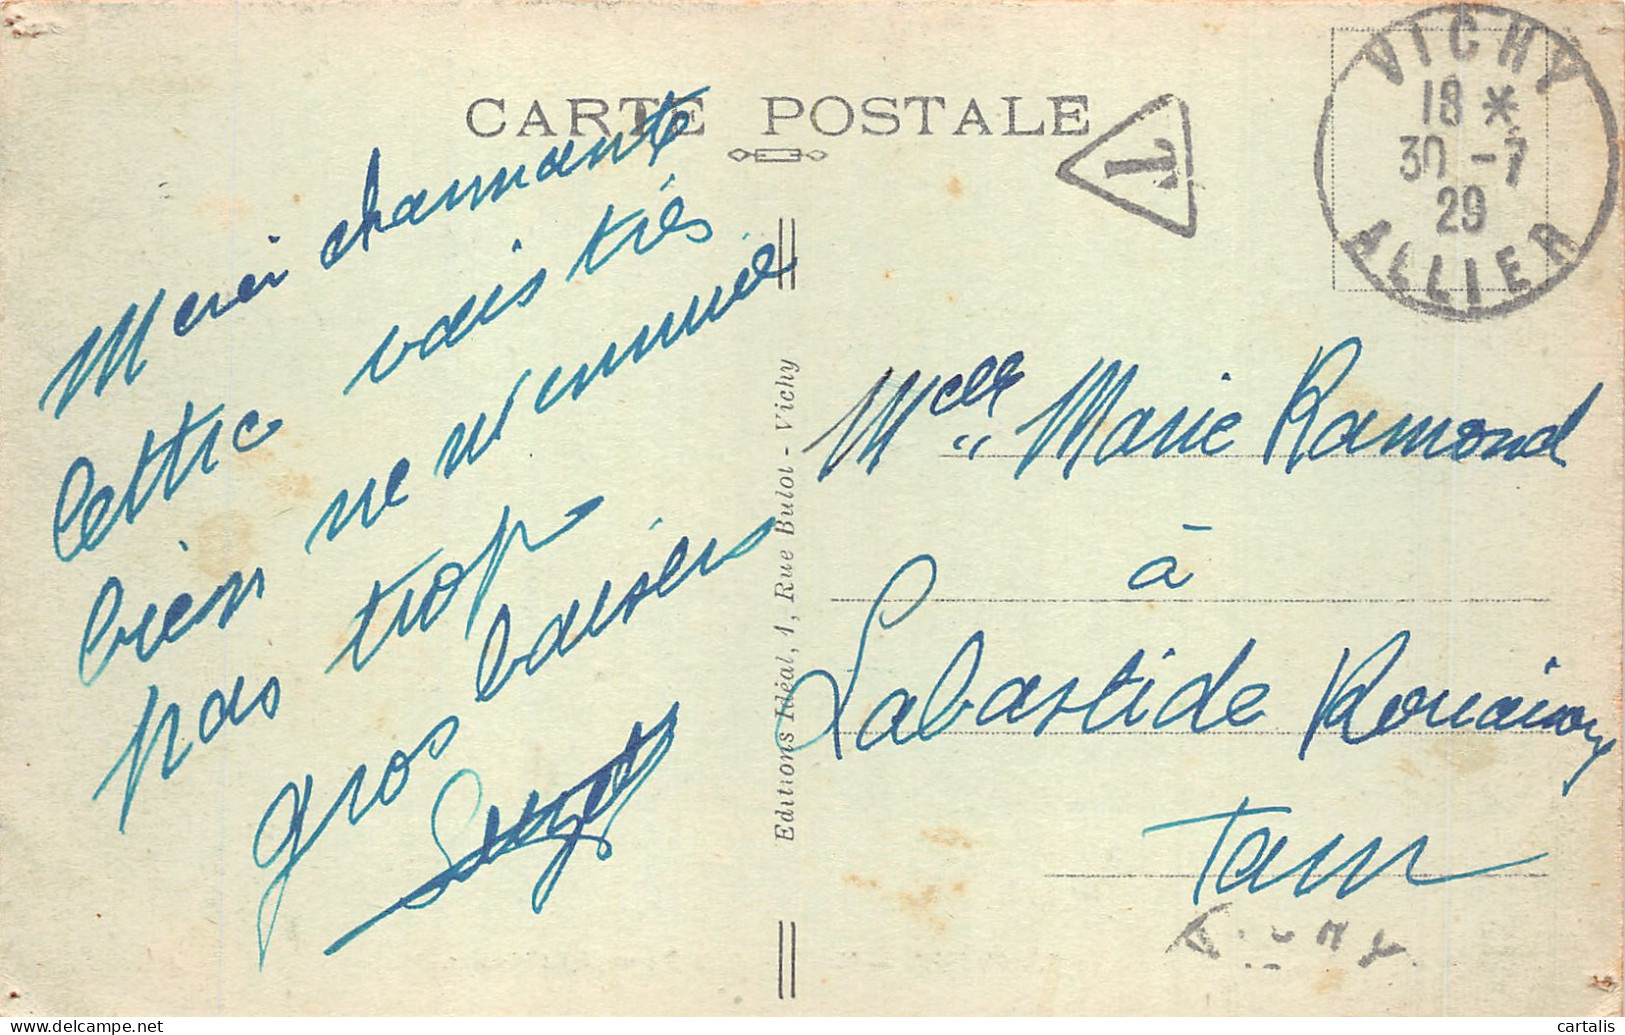 CARTE POSTALE
T
VICHY
18 *
30 - 7
29
ALLIER
Merci charmante
lettre vais très
bien ne m'ennuie
pas trop
gros baisers
Editions Idéal, 1, Rue Bulot - Vichy
Melle Marie Ramond
à
Labastide Rouairoux
Tarn
delcampe.net
cartalis